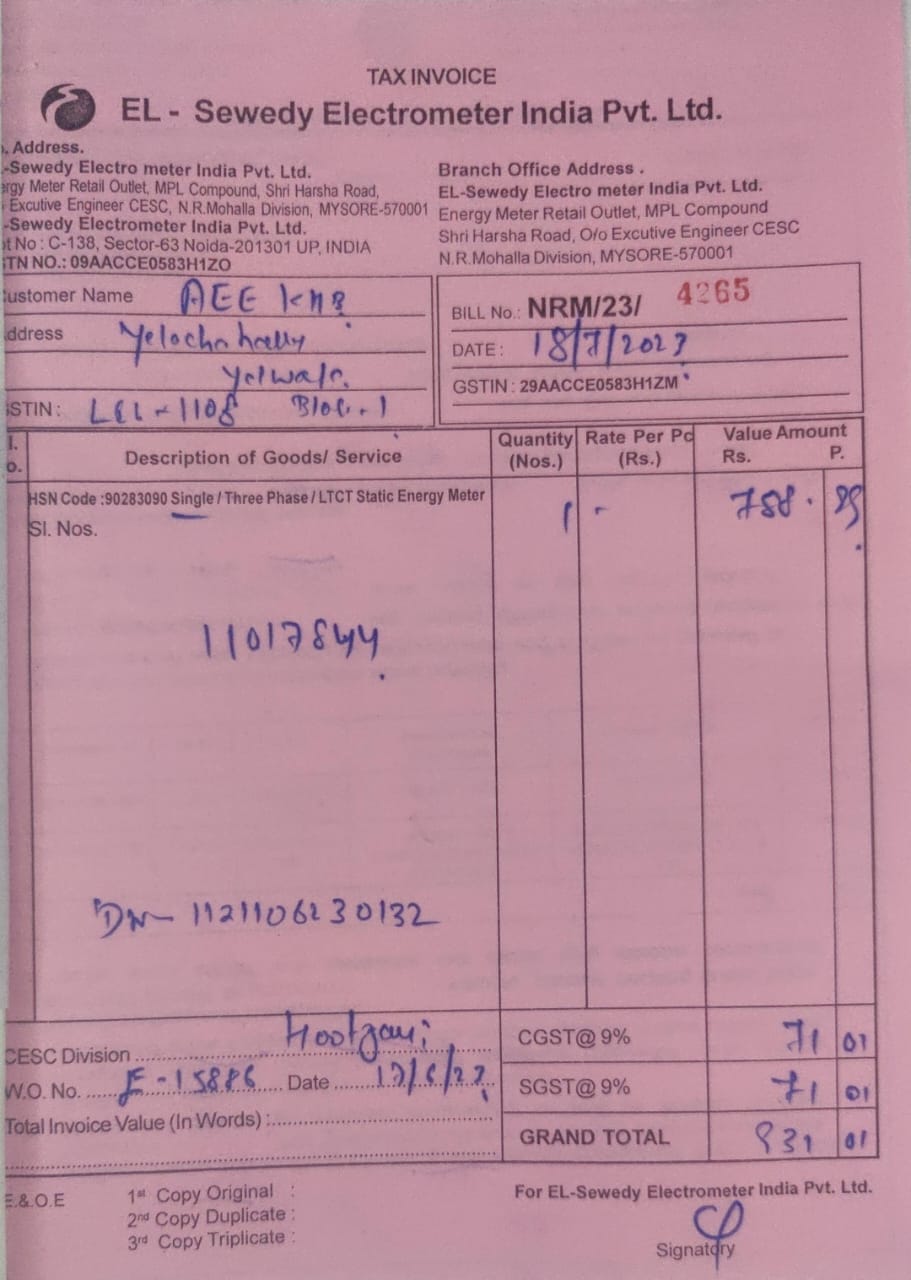 TAX INVOICE
EL - Sewedy Electrometer India Pvt. Ltd.
. Address.
-Sewedy Electro meter India Pvt. Ltd.
rgy Meter Retail Outlet, MPL Compound, Shri Harsha Road,
Excutive Engineer CESC, N.R.Mohalla Division, MYSORE-570001
-Sewedy Electrometer India Pvt. Ltd.
t No : C-138, Sector-63 Noida-201301 UP, INDIA
TN NO.: 09AACCE0583H1ZO
Branch Office Address .
EL-Sewedy Electro meter India Pvt. Ltd.
Energy Meter Retail Outlet, MPL Compound
Shri Harsha Road, O/o Excutive Engineer CESC
N.R.Mohalla Division, MYSORE-570001
ustomer Name AEE
ddress
STIN : 1108
BILL No.: NRM/23/ 4265
DATE : 18/7/2023
GSTIN : 29AACCE0583H1ZM
l.
o.
Description of Goods/ Service
Quantity (Nos.)
Rate Per Pc (Rs.)
Value Amount
Rs. P.
HSN Code :90283090 Single / Three Phase / LTCT Static Energy Meter 1 -
Sl. Nos.
11017844
DN- 1121106230132
CESC Division Hootgalli
W.O. No. E-15886 Date
Total Invoice Value (In Words) :
CGST@ 9% 71 01
SGST@ 9% 71 01
GRAND TOTAL 931 01
E.&.O.E
1st Copy Original :
2nd Copy Duplicate :
3rd Copy Triplicate :
For EL-Sewedy Electrometer India Pvt. Ltd.
Signatory